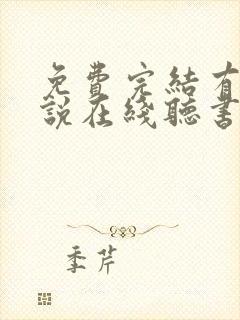 免費完結有
說在綫聽書
季芹